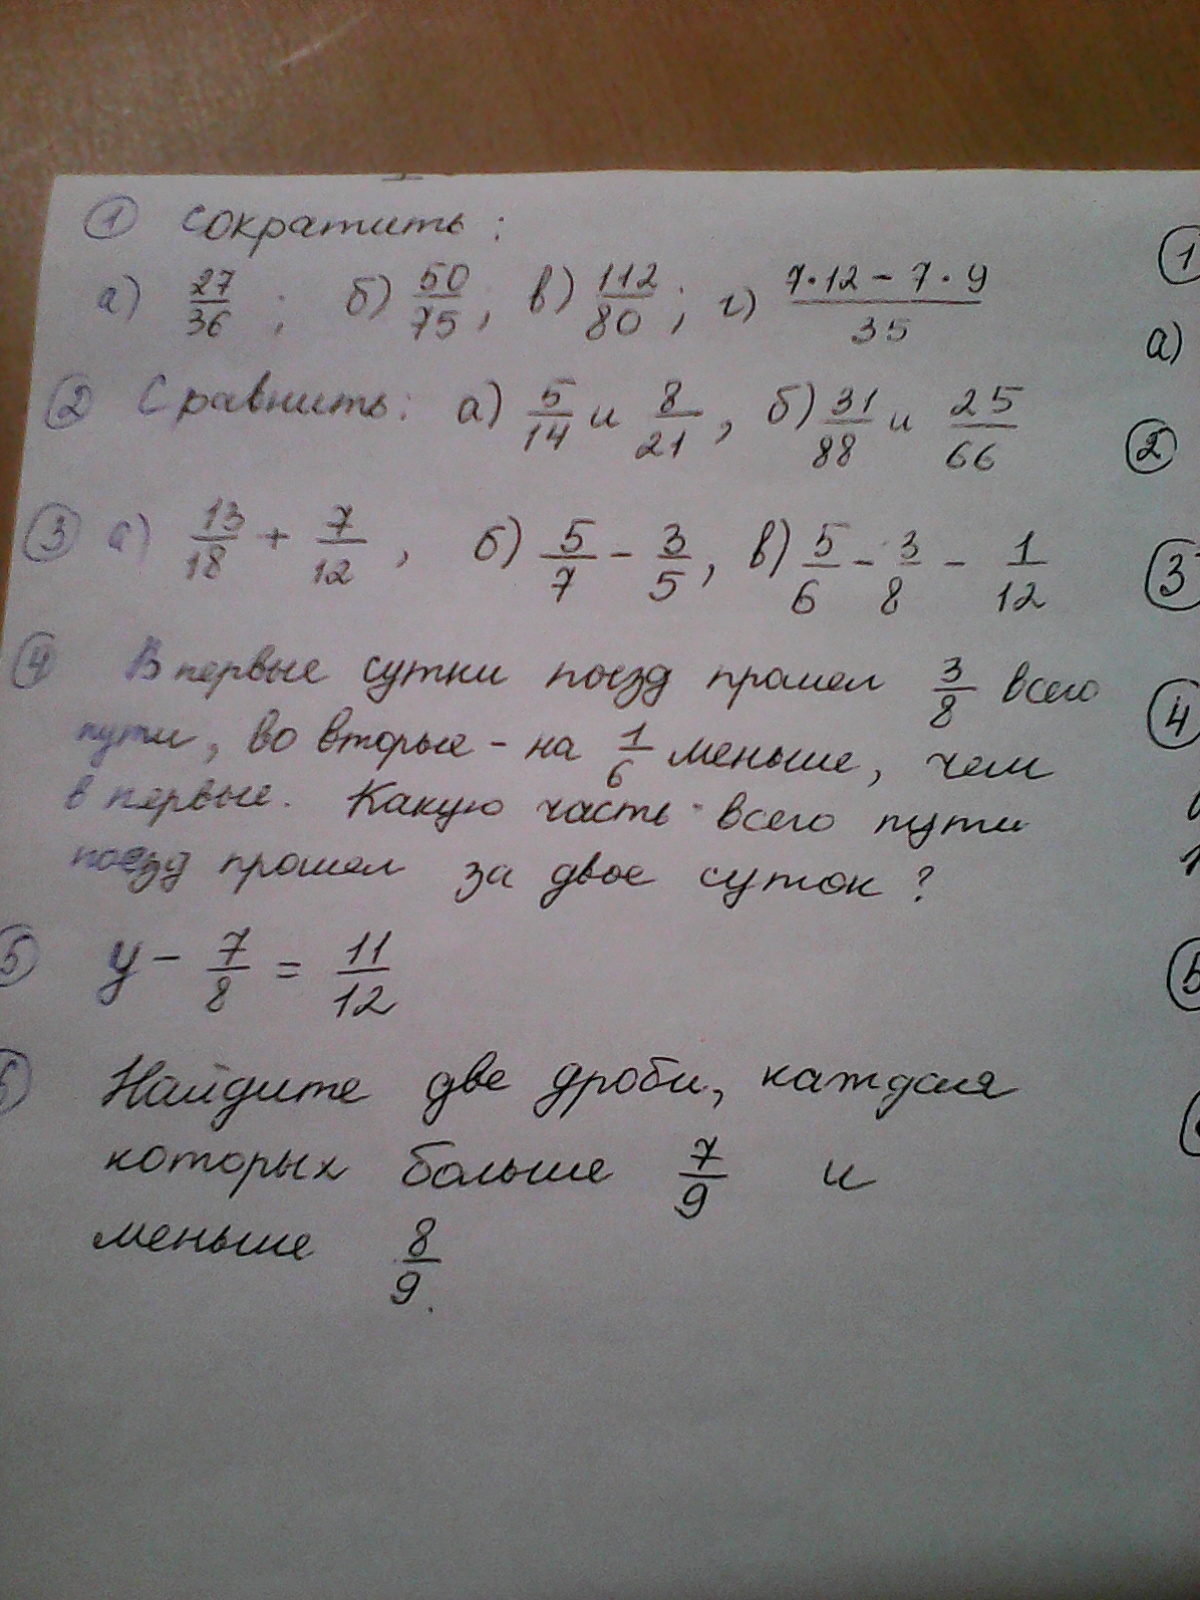 ① Сократить:
а) 27/36; б) 50/75, в) 112/80; г) (7·12 − 7·9)/35
② Сравнить: а) 5/14 и 8/21, б) 31/88 и 25/66
③ а) 13/18 + 7/12, б) 5/7 − 3/5, в) 5/6 − 3/8 − 1/12
④ В первые сутки поезд прошел 3/8 всего
пути, во вторые - на 1/6 меньше, чем
в первые. Какую часть всего пути
поезд прошел за двое суток?
5 у − 7/8 = 11/12
Найдите две дроби, каждая
которых больше 7/9 и
меньше 8/9.
①
а)
②
③
④
⑤